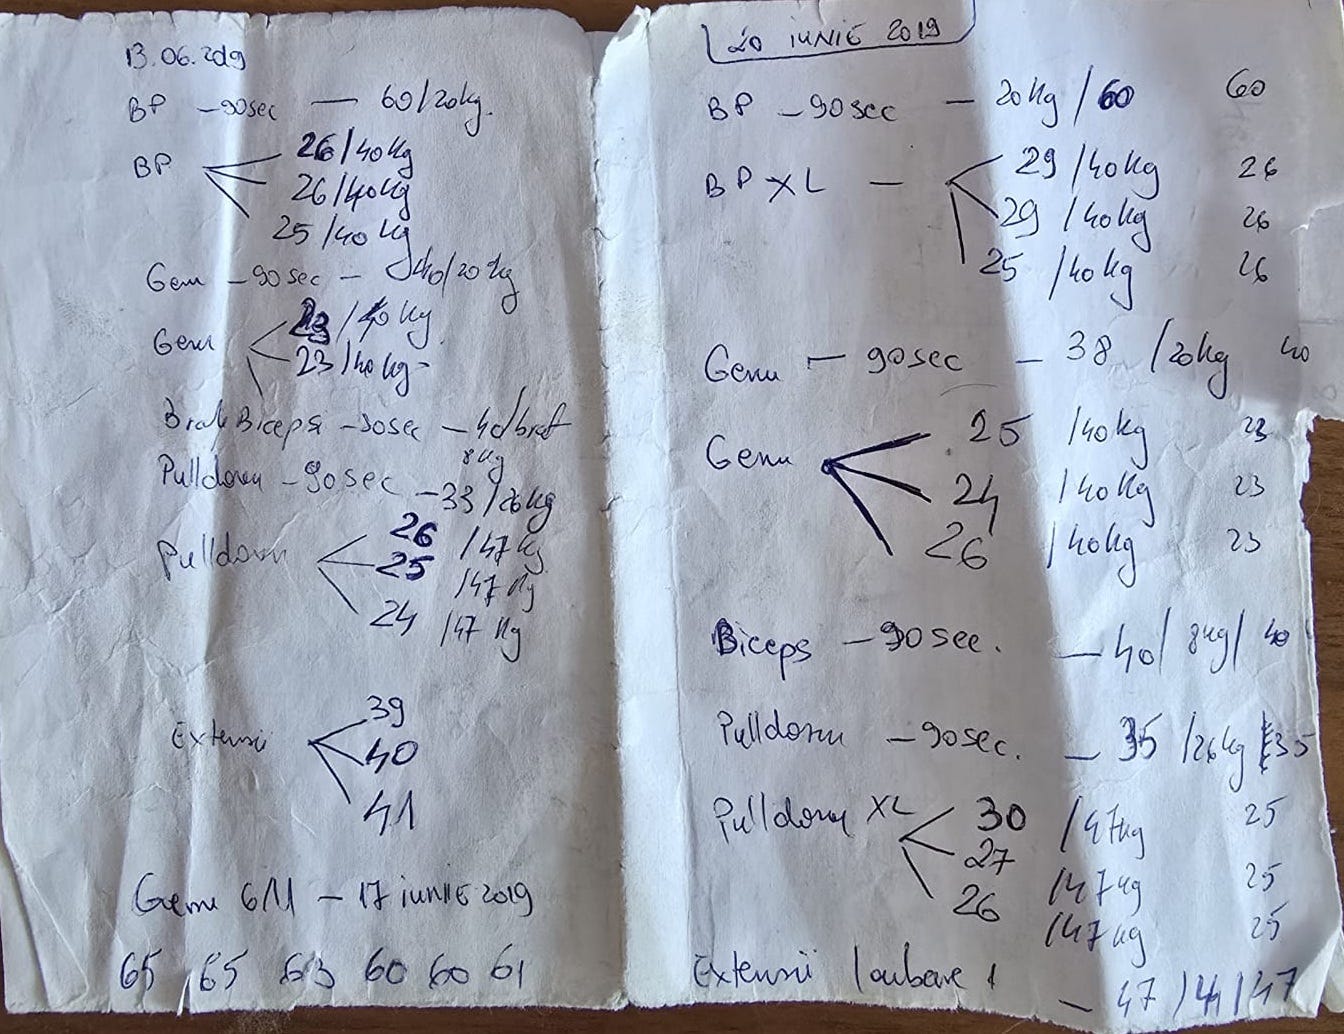 13.06.2019
BP - 90sec — 60/20kg.
BP 26/40kg
26/40kg
25/40kg
Genu - 90sec - 40/20kg
Genu 23/40kg
23/40kg -
Biceps - 90sec - 40/braț
8kg
Pulldown - 90sec - 33/26kg
Pulldown 26 /47kg
25 /47kg
24 /47kg
Extensii 39
40
41
Genu 6M - 17 iunie 2019
65 65 63 60 60 61
20 iunie 2019
BP - 90sec - 20kg/60 60
BP XL - 29/40kg 26
29/40kg 26
25/40kg 26
Genu - 90sec - 38/20kg 40
Genu 25 /40kg 23
24 /40kg 23
26 /40kg 23
Biceps - 90sec. - 40/8kg/40
Pulldown - 90sec. - 35/26kg 35
Pulldown XL 30 /47kg 25
27 /47kg 25
26 /47kg 25
Extensii - 47/44/47